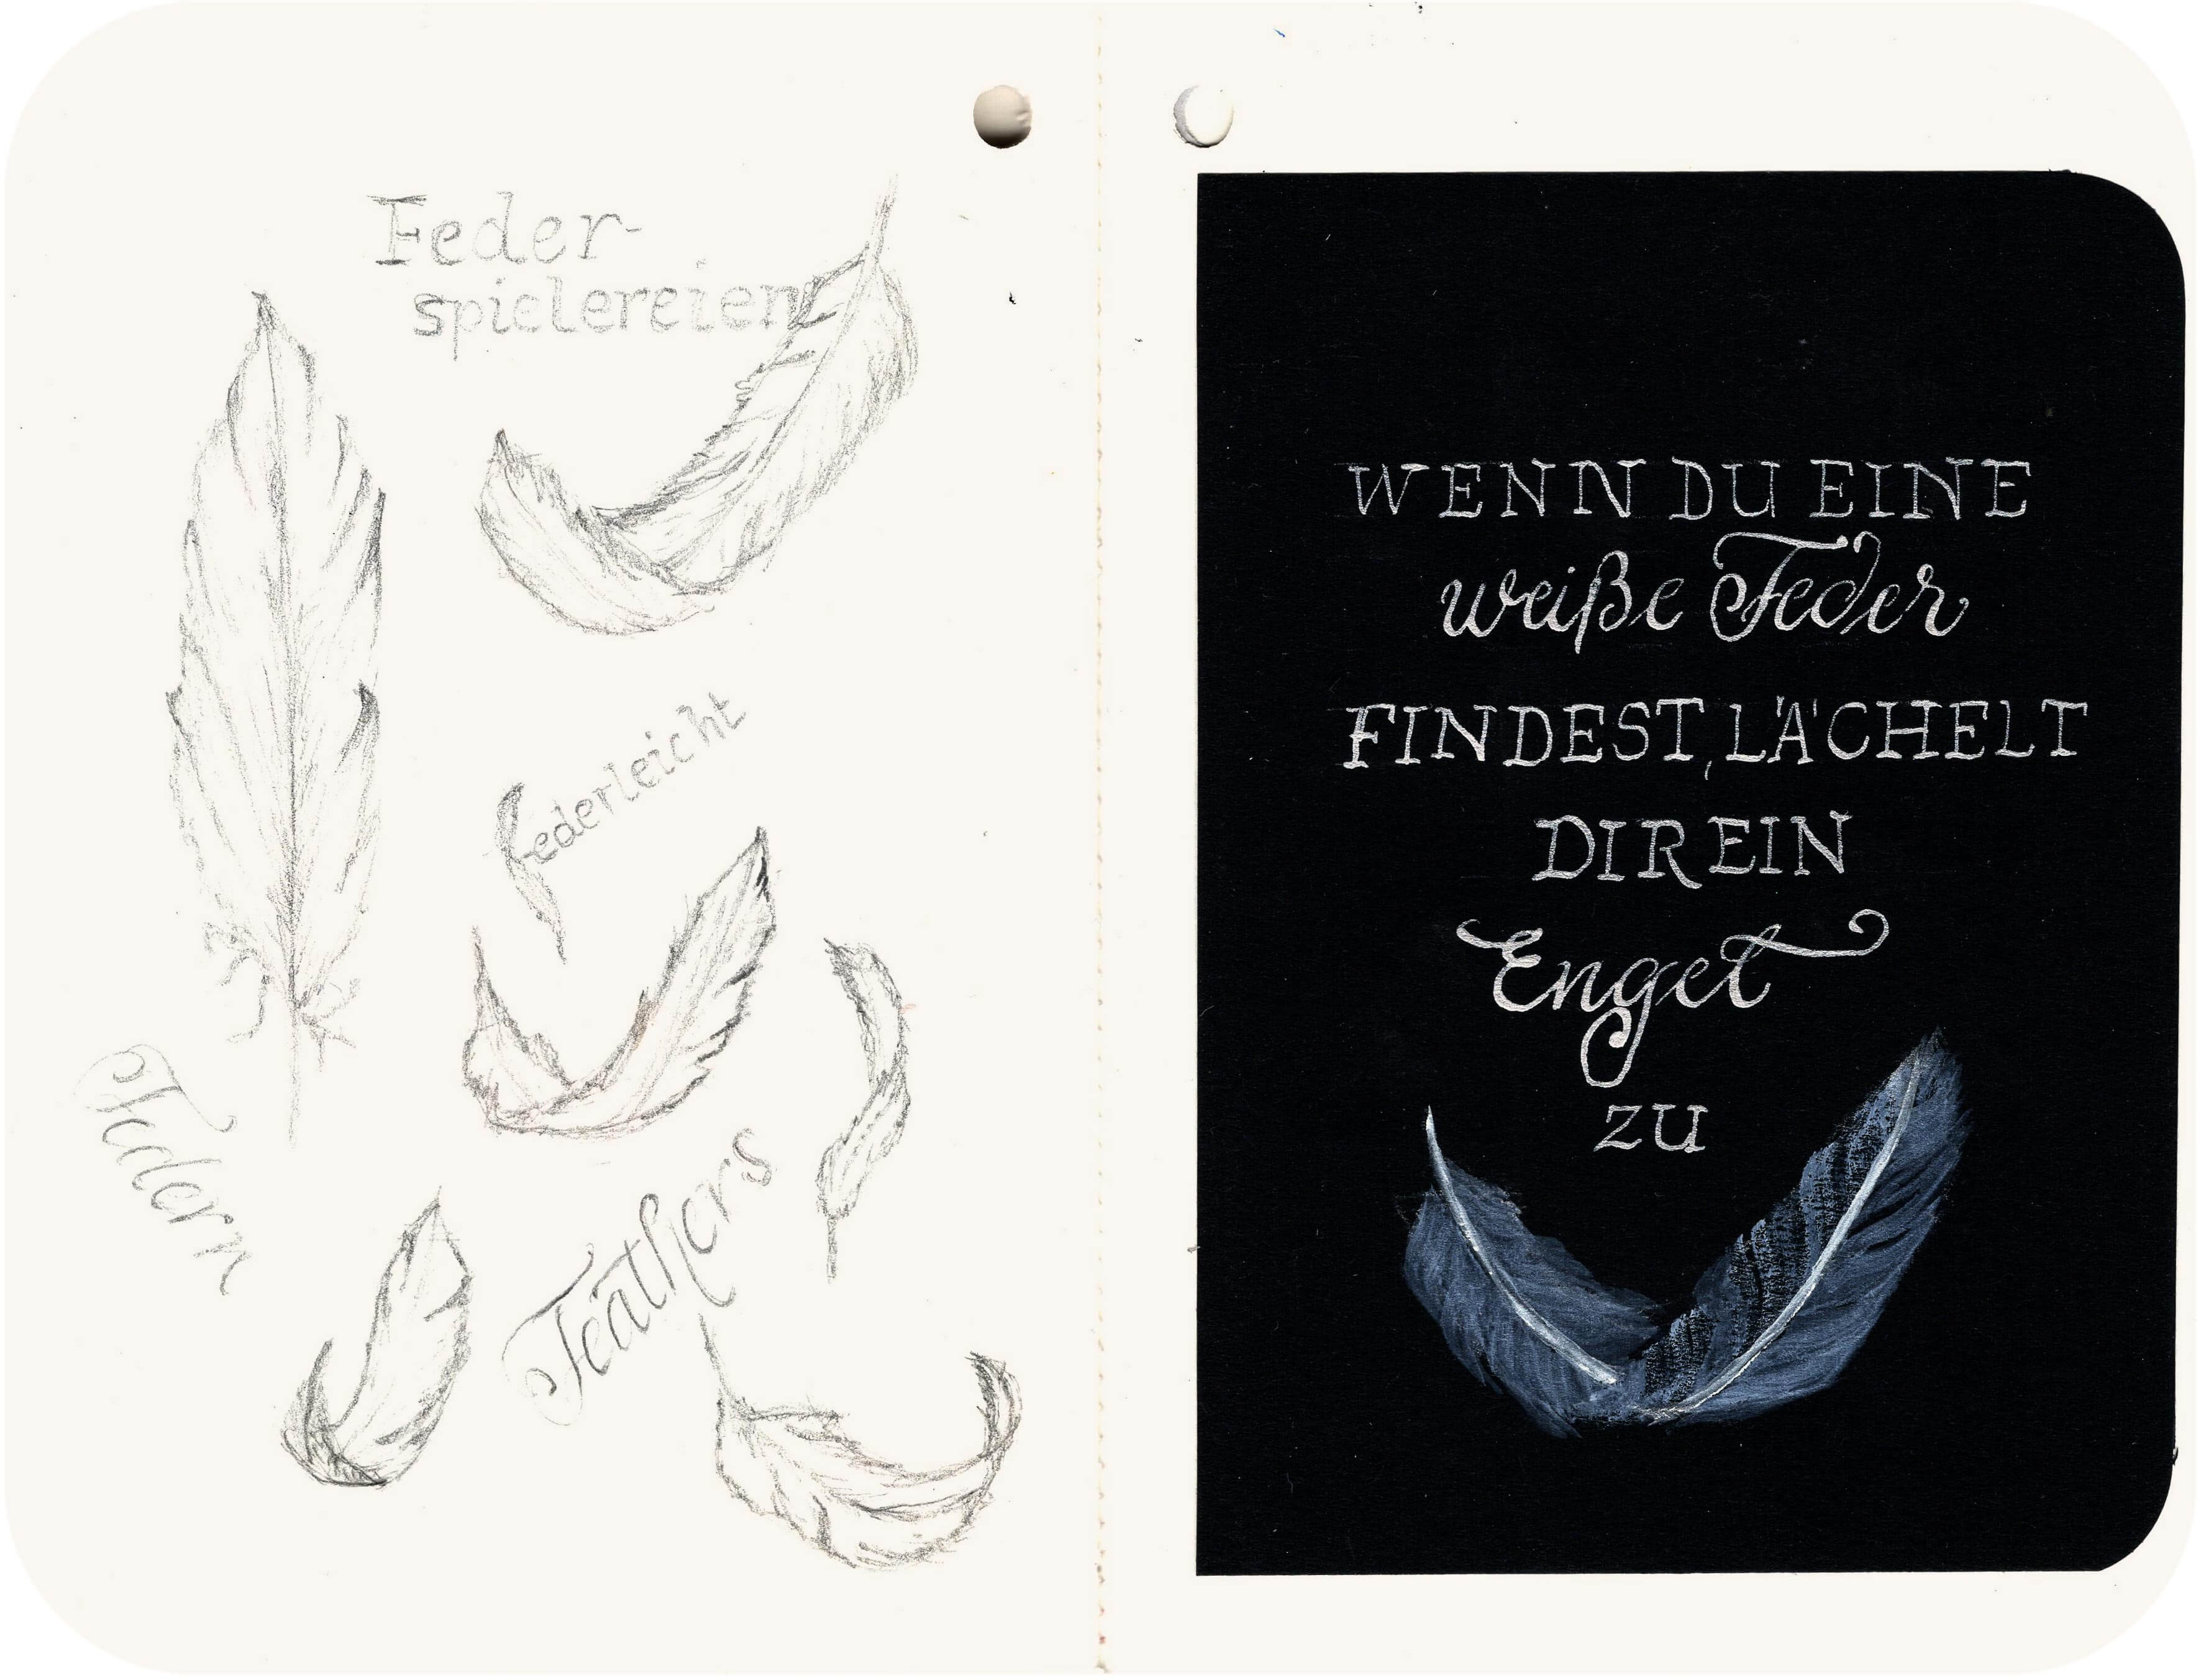 Feder-
spielereien
federleicht
Federn
Feathers
WENN DU EINE
weiße Feder
FINDEST, LÄCHELT
DIR EIN
Engel
ZU